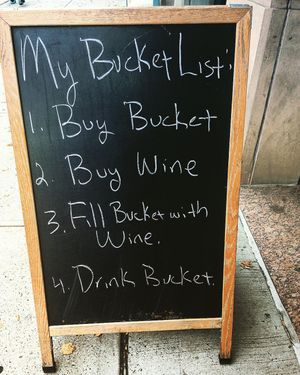 My Bucket List:
1. Buy Bucket
2. Buy Wine
3. Fill Bucket with
Wine.
4. Drink Bucket.